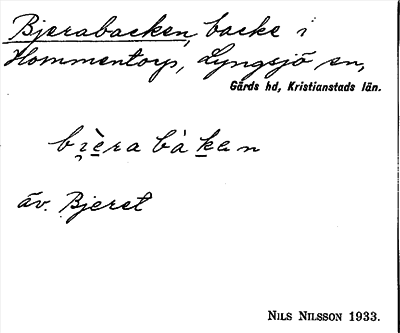 Bjerabacken, backe i
Hommentorp, Lyngsjö sn,
Gärds hd, Kristianstads län.
bi̯èrabàkan
äv. Bjeret
NILS NILSSON 1933.